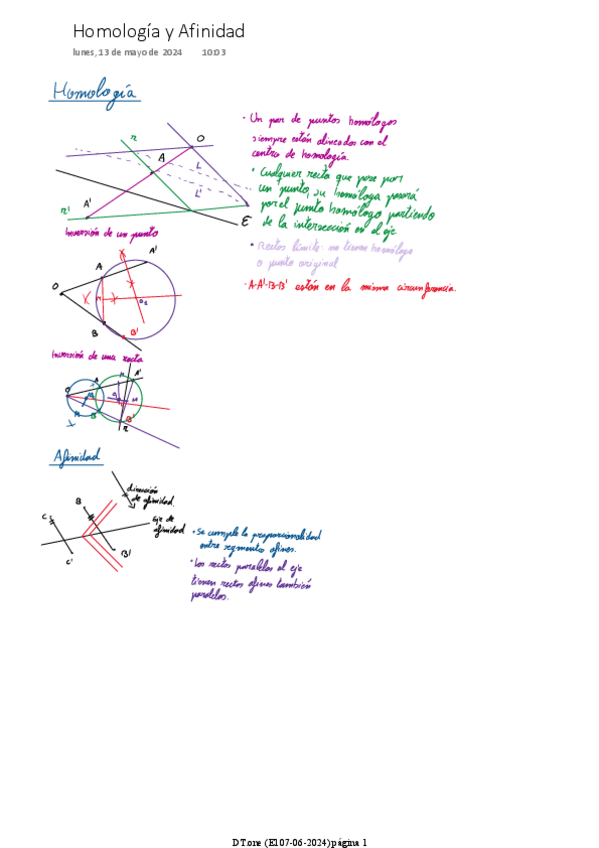 Homología y Afinidad
lunes, 13 de mayo de 2024 10:03
Homología
· Un par de puntos homólogos
siempre están alineados con el
centro de homología.
· Cualquier recta que pase por
un punto, su homóloga pasará
por el punto homólogo partiendo
de la intersección en el eje
· Rectas límite: no tienen homólogo
o punto original
· A-A'-B-B' están en la misma circunferencia.
r
O
A
L
L'
A'
r'
E
Inversión de un punto
A'
A
O
B
B'
Inversión de una recta
A'
O
B'
r
Afinidad
dirección
de afinidad.
B
C
eje de
afinidad
C'
B'
· Se cumple la proporcionalidad
entre segmentos afines.
· Las rectas paralelas al eje
tienen rectas afines también
paralelas.
DTone (E107-06-2024)página 1